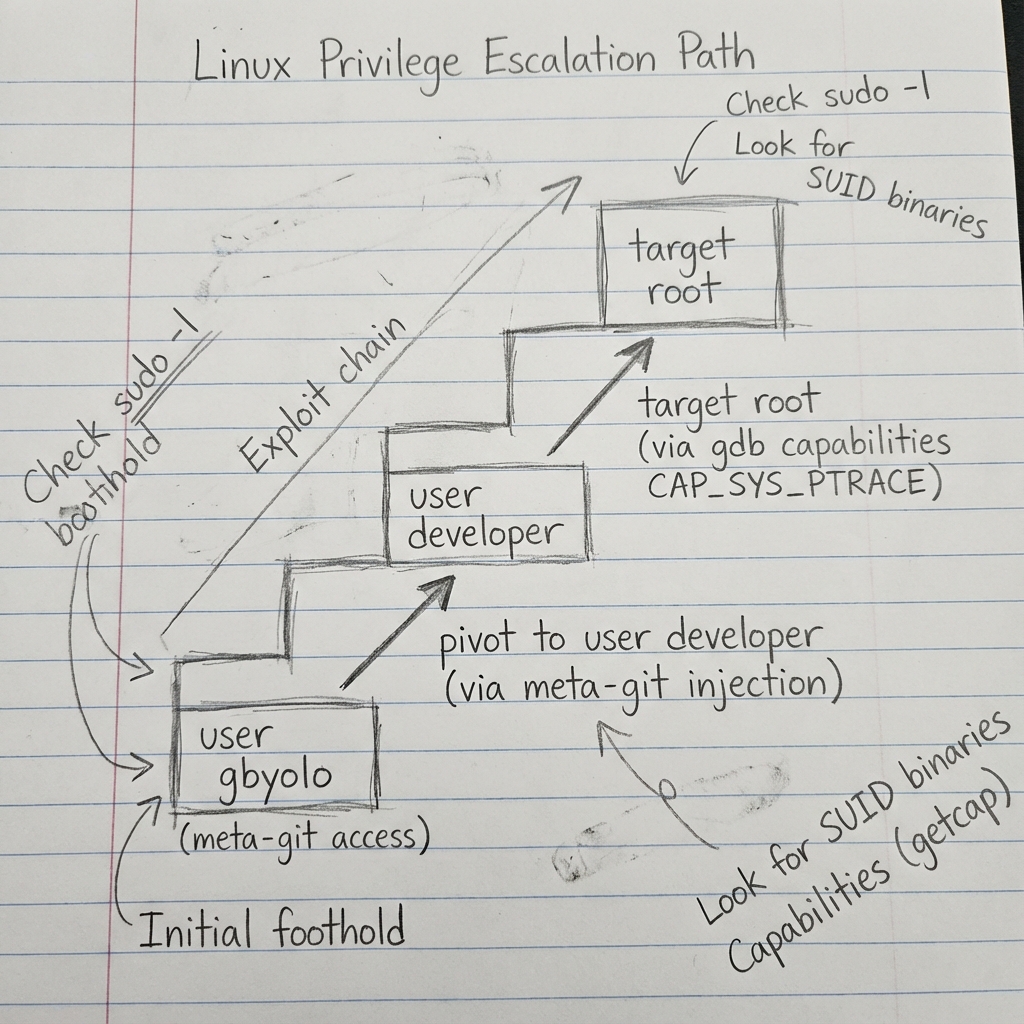 Linux Privilege Escalation Path
Check sudo -l
Look for
SUID binaries
target
root
Check sudo -l
boothold
Exploit chain
target root
(via gdb capabilities
CAP_SYS_PTRACE)
user
developer
pivot to user developer
(via meta-git injection)
user
gbyolo
(meta-git access)
Look for SUID binaries
Capabilities (getcap)
Initial foothold